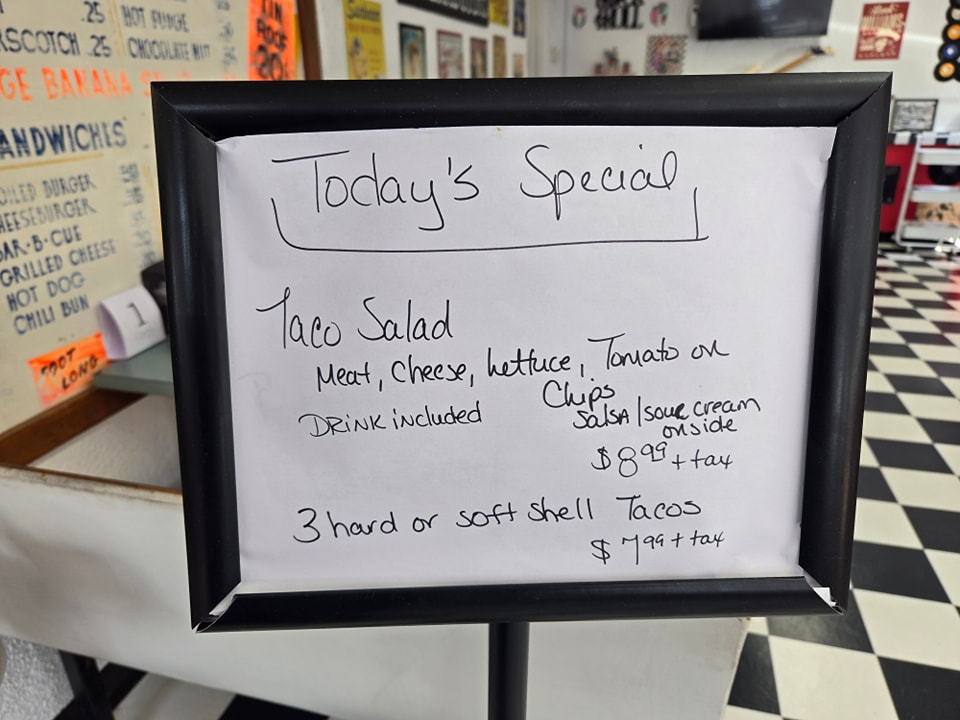 .25
HOT FUDGE
RSCOTCH .25
CHOCOLATE NUT
TIN
ROOF
BANANA
SANDWICHES
BURGER
CHEESEBURGER
BAR-B-CUE
GRILLED CHEESE
HOT DOG
CHILI BUN
FOOT
LONG
1
Today's Special
Taco Salad
Meat, Cheese, Lettuce, Tomato on
Chips
DRINK included
Salsa/sour cream
onside
$8.99 + tax
3 hard or soft shell Tacos
$7.99 + tax